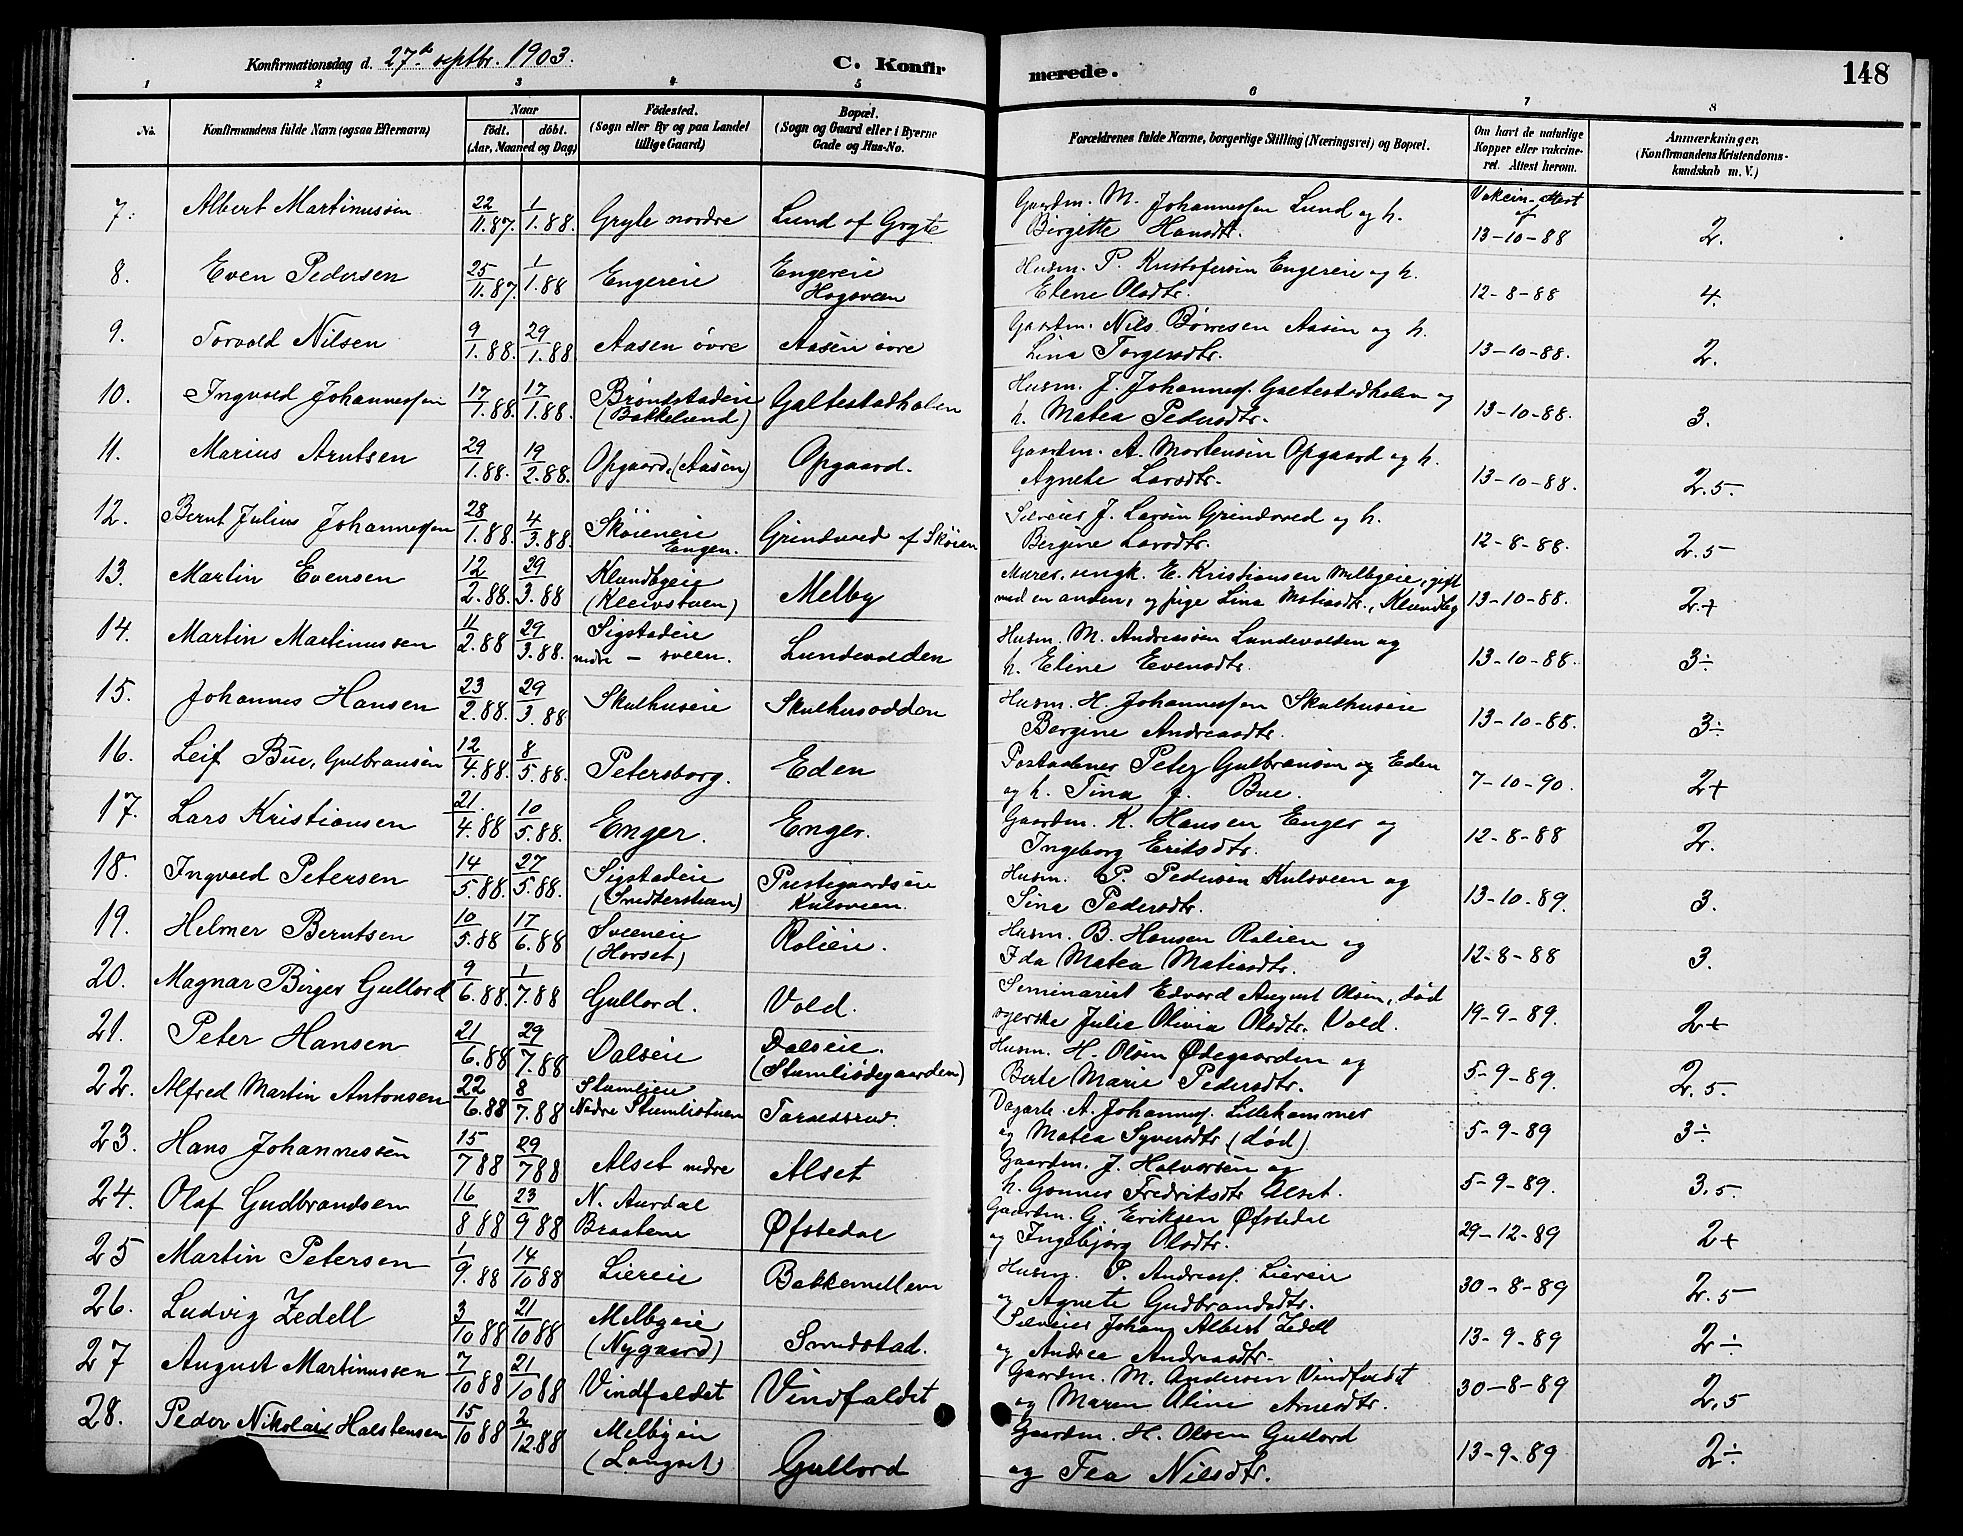 Konfirmationsdag d. 27de septbr. 1903.
C. Konfirmerede.
148
1 2 3 4 5 6 7 8
No.
Konfirmandens fulde Navn (ogsaa Efternavn)
Naar
födt. döbt.
(Aar, Maaned og Dag)
Födested.
(Sogn eller By og paa Landet
tillige Gaard)
Bopæl.
(Sogn og Gaard eller i Byerne
Gade og Hus-No.
Forældrenes fulde Navne, borgerlige Stilling (Næringsvei) og Bopæl.
Om havt de naturlige
Kopper eller vakcine-
ret. Attest herom.
Anmærkninger.
(Konfirmandens Kristendoms-
kundskab m. V.)
7. Albert Martinussen 22/11.87. 1/1.88. Gryte nordre Lund af Gryte Gaardm. M. Johannessen Lund og h. Vakcin. attest af
Birgitte Hansdtr. 13-10-88 2.
8. Even Pedersen 25/11.87. 1/1.88 Engereie Engereie Husm. P. Kristofersen Engereie og h.
Hagsveen Eline Olsdtr. 12-8-88 4.
9. Torvald Nilsen 9/1.88. 29/1.88 Aasen övre Aasen övre Gaardm. Nils Börresen Aasen og h.
Lina Torgersdtr. 13-10-88. 2.
10. Ingvald Johannessen 17/1.88. 17/1.88. Bröndstadeie Galtestadholen Husm. J. Johannesf. Galtestadholen og
(Bakkelund) h. Matea Pedersdtr. 13-10-88. 3.
11. Marius Arntsen 29/1.88. 19/2.88. Opgaard, (Aasen) Opgaard. Gaardm. A. Mortensen Opgaard og h.
Agnete Larsdtr. 13-10-88. 2.5.
12. Bernt Julius Johannessen 28/1.88. 4/3.88. Sköieneie Grindvold af Sköien Selveier J. Larsen Grindvold og h.
Engen. Bergine Larsdtr. 12-8-88. 2.5
13. Martin Evensen 12/2.88. 29/3.88 Klundbyeie Melby Murer. ungk. E. Kristiansen Melbyeie, gift
(Kleivstuen) med en anden, og pige Lina Matiasdtr., Klundby 13-10-88. 2+
14. Martin Martinussen 11/2.88 29/3.88. Sigstadeie Lundevolden Husm. M. Andreassen Lundevolden og
nedre - sveen. h. Eline Evensdtr. 13-10-88. 3÷
15. Johannes Hansen 23/2.88. 29/3.88 Skulhuseie Skulhusodden Husm. H. Johannessen Skulhuseie
Bergine Andreasdtr. 13-10-88. 3÷
16. Leif Bue, Gulbransen 12/4.88. 8/5.88. Petersborg. Eden Postaabner Peter Gulbransen og Eden
og h. Tina f. Bue. 7-10-90. 2+
17. Lars Kristiansen 21./4.88 10/5.88. Enger. Enger. Gaardm. K. Hansen Enger og
Ingeborg Eriksdtr. 12-8-88 2.
18. Ingvald Petersen 14/5.88. 27/5.88. Sigstadeie Prestegaardseie Husm. P. Pedersen Kulsveen og
(Smedterstuen) Kulsveen. Sina Pedersdtr. 13-10-89. 3.
19. Helmer Berntsen 10/5.88 17/6.88 Sveeneie Rolien. Husm. B. Hansen Rolien og
(Horset) Ida Matea Matiasdtr. 12-8-88 3.
20. Magnar Birger Gullord 9/6.88. 1/7.88 Gullord. Vold. Seminarist Edvard August Olsen, död
ogerske Julie Olivia Olsdtr. Vold. 19-9-89. 2+
21. Peter Hansen 21/6.88 29/7.88 Dalseie Dalseie. Husm. H. Olsen Ødegaarden og
(Stumliödegaarden) Berte Marie Pedersdtr. 5-9-89. 2.5.
22. Alfred Martin Antonsen 22/6.88 8/7.88 Stumlien Taraldsrud. Dagarb. A. Johannesf. Lillehammer
Nedre Stumlistuen og Matea Syversdtr. (död). 5-9-89 3÷
23. Hans Johannessen 15/7 88 29/7 88 Alset nedre Alset Gaardm. J. Halvorsen og
h. Gonner Fredriksdtr. Alset. 5-9-89. 3.5.
24. Olaf Gudbrandsen 16/8 88 23/9 88 N. Aurdal Øfstedal Gaardm. G. Eriksen Øfstedal
Braatene og Ingebjörg Olsdtr. 29-12-89 2+
25 Martin Petersen 1/9. 88 14/10 88 Liereie Bakkemellem Husm. P. Andreasf. Liereie
og Agnete Gudbrandsdtr. 30-8-89 2.5
26. Ludvig Zedell 3/10 88 21/10 88 Melbyeie Smedstad. Selveier Johan Albert Zedell
(Nygaard) og Andrea Andreasdtr. 13-9-89 2÷
27 August Martinussen 7/10 88 21/10 88 Vindfaldet Vindfaldet Gaardm. M. Andersen Vindfaldet
og Maren Aline Arnesdtr. 30-8-89 2.5
28. Peder Nikolai Halstensen 15/10 88 2/12.88 Melbyeie Gullord Gaardm. H. Olsen Gullord
(Langset) og Fea Nilsdtr. 13-9-89 2÷